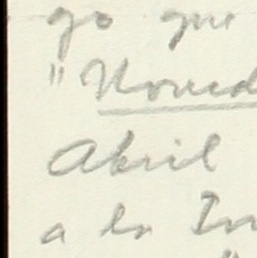 go que
"Noved
Abril
a la In